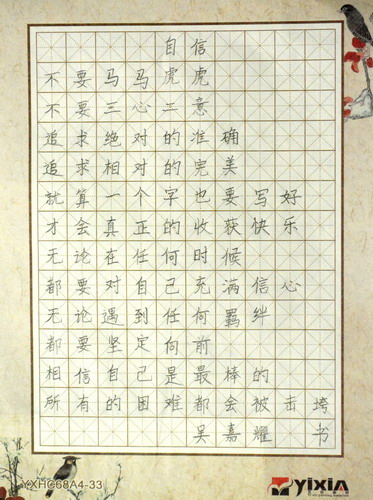 自信
不要马马虎虎
不要三心二意
追求绝对的准确
追求相对的完美
就算一个字也要写好
才会真正的收获快乐
无论在任何时候
都要对自己充满信心
无论遇到任何羁绊
都要坚定向前
相信自己是最棒的
所有的困难都会被击垮
吴嘉耀书
YXHC68A4-33
yixin